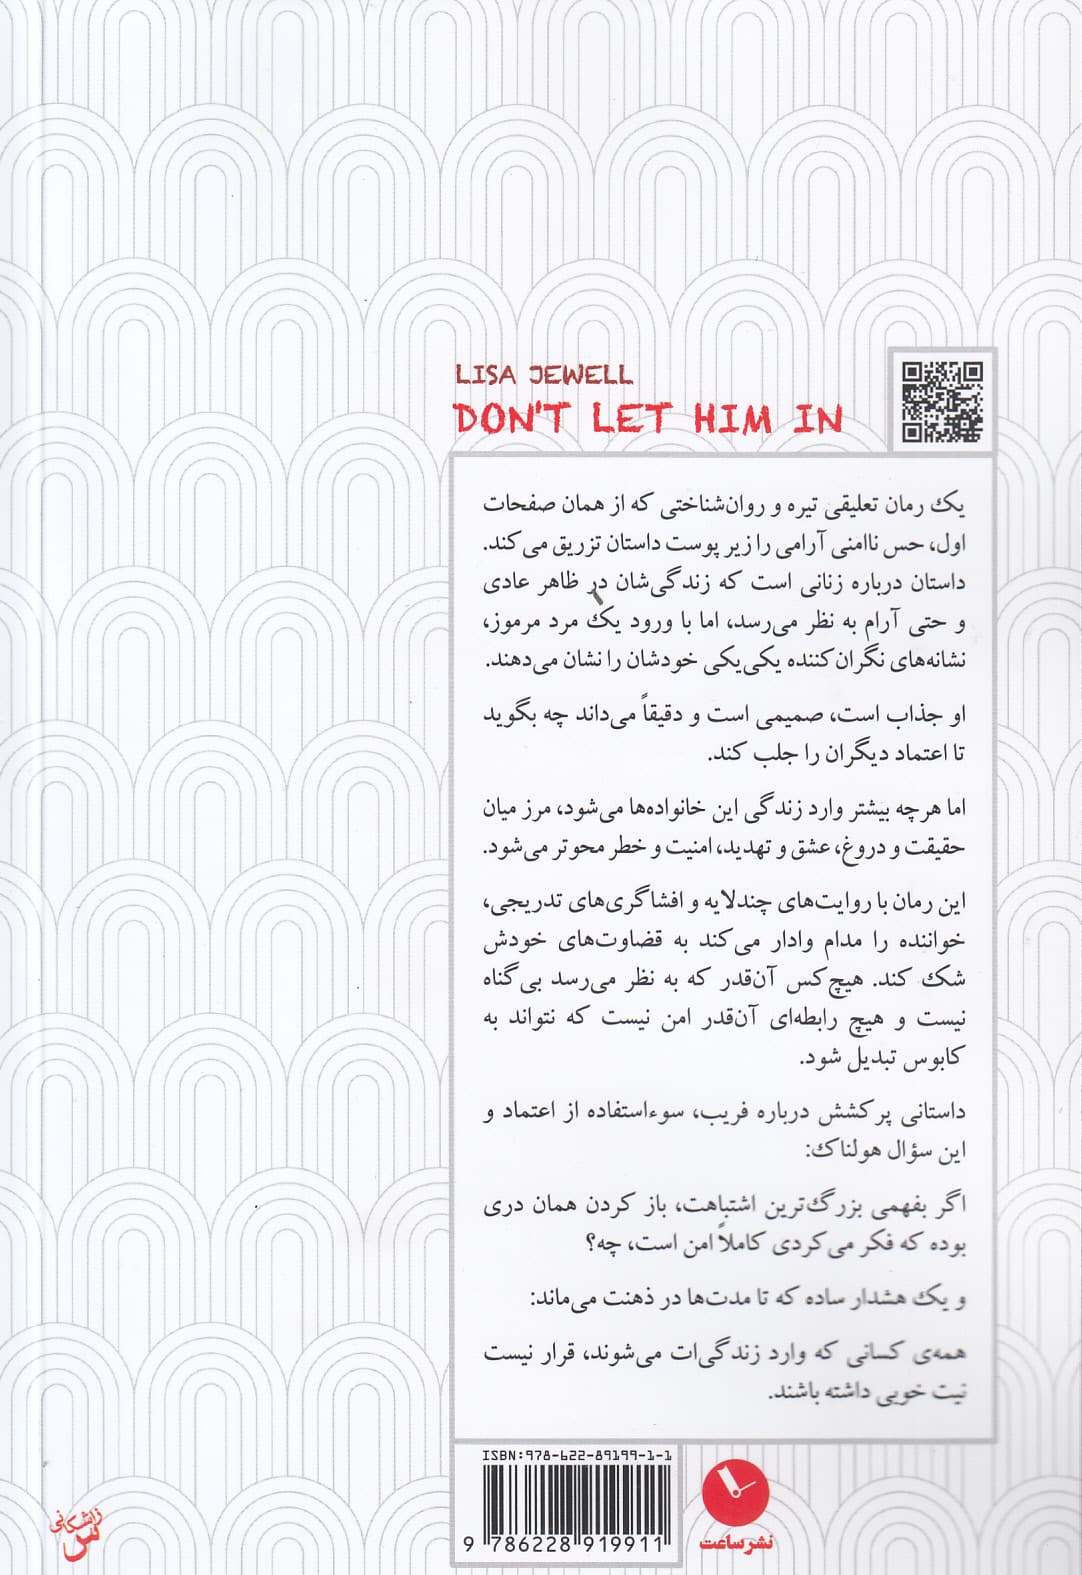 LISA JEWELL
DON'T LET HIM IN
یک رمان تعلیقی تیره و روان‌شناختی که از همان صفحات
اول، حس ناامنی آرامی را زیر پوست داستان تزریق می‌کند.
داستان درباره زنانی است که زندگی‌شان در ظاهر عادی
و حتی آرام به نظر می‌رسد، اما با ورود یک مرد مرموز،
نشانه‌های نگران‌کننده یکی‌یکی خودشان را نشان می‌دهند.
او جذاب است، صمیمی است و دقیقاً می‌داند چه بگوید
تا اعتماد دیگران را جلب کند.
اما هرچه بیشتر وارد زندگی این خانواده‌ها می‌شود، مرز میان
حقیقت و دروغ، عشق و تهدید، امنیت و خطر محوتر می‌شود.
این رمان با روایت‌های چندلایه و افشاگری‌های تدریجی،
خواننده را مدام وادار می‌کند به قضاوت‌های خودش
شک کند. هیچ‌کس آن‌قدر که به نظر می‌رسد بی‌گناه
نیست و هیچ رابطه‌ای آن‌قدر امن نیست که نتواند به
کابوس تبدیل شود.
داستانی پرکشش درباره فریب، سوءاستفاده از اعتماد و
این سؤال هولناک:
اگر بفهمی بزرگ‌ترین اشتباهت، باز کردن همان دری
بوده که فکر می‌کردی کاملاً امن است، چه؟
و یک هشدار ساده که تا مدت‌ها در ذهنت می‌ماند:
همه‌ی کسانی که وارد زندگی‌ات می‌شوند، قرار نیست
نیت خوبی داشته باشند.
ISBN:978-622-89199-1-1
9 786228 919911
نشر ساعت